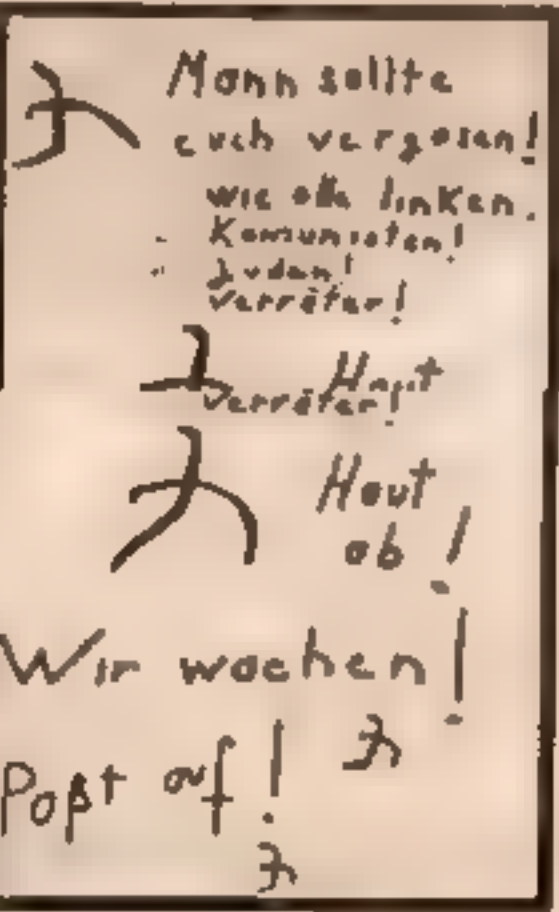 Mann sollte
euch vergasen!
wie alle linken.
Komunisten!
Juden!
Verräter!
Haut
Verräter!
Haut
ab!
Wir wachen!
Paßt auf!